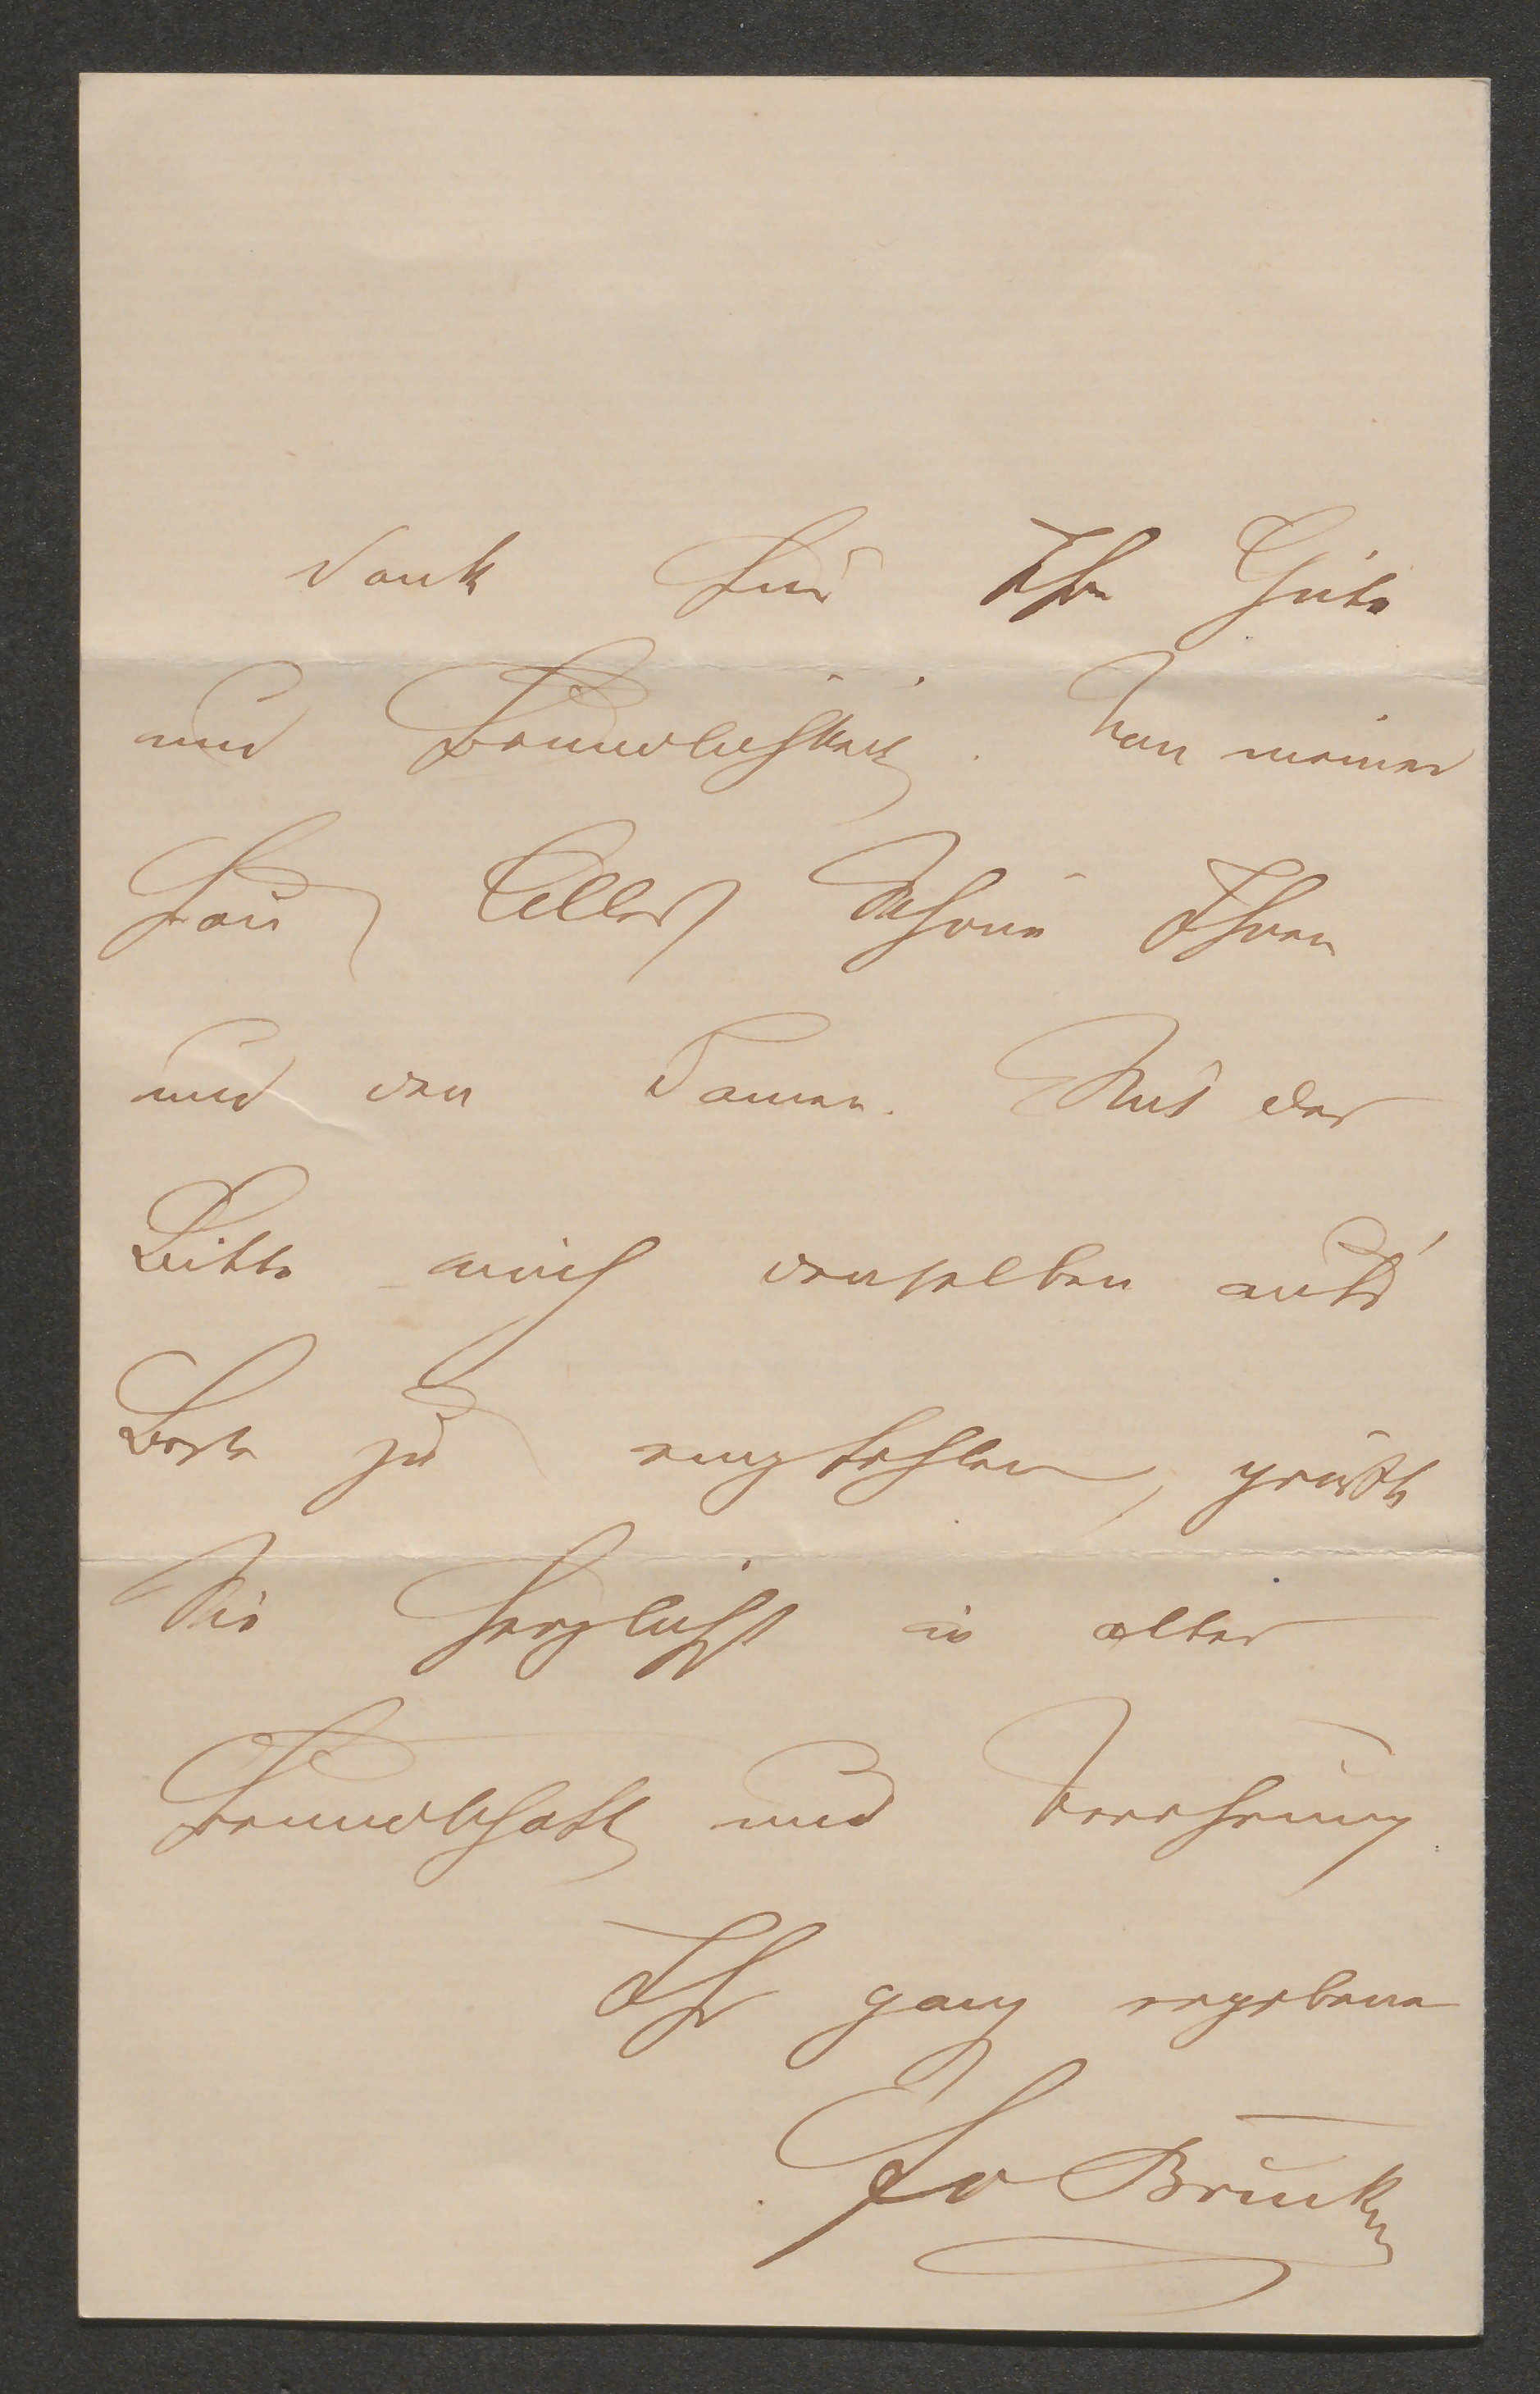 Dank für Ihre Güte
und Freundlichkeit. Von meiner
Frau Alles Schöne Ihnen
und den Damen. Mit der
Bitte mich denselben auf's
Beste zu empfehlen, grüßt
Sie herzlichst in alter
Freundschaft und Verehrung
Ihr ganz ergebener